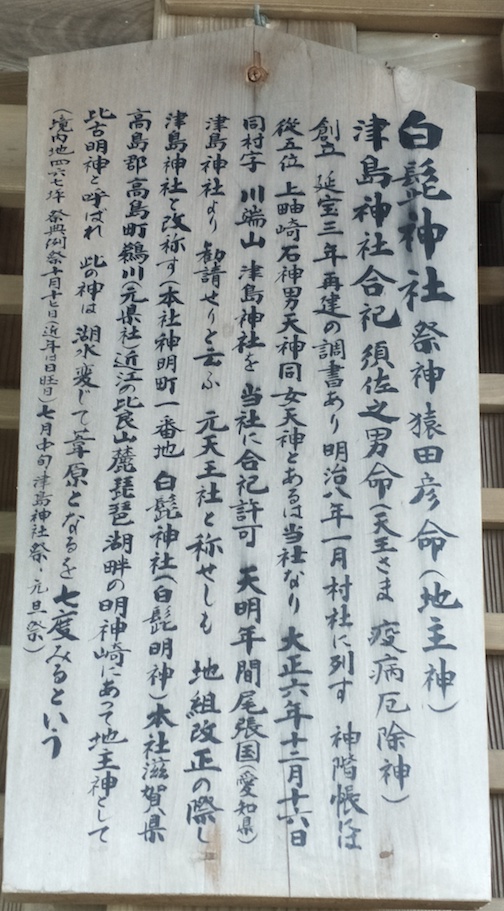 白髭神社 祭神 猿田彦命(地主神)
津島神社合祀 須佐之男命(天王さま 疫病厄除神)
創立 延宝三年再建の調書あり 明治八年一月村社に列す 神階帳には
従五位上 㽵崎石神男天神同女天神とあるは当社なり 大正六年十二月十六日
同村字 川端山 津島神社を 当社に合祀許可 天明年間尾張国(愛知県)
津島神社より 勧請せりと云ふ 元天王社と称せしも 地組改正の際し
津島神社と改称す(本社神明町一番地 白髭神社(白髭明神)本社滋賀県
高島郡高島町鵜川(元県社 近江の比良山麓琵琶湖畔の明神崎にあって地主神として
比古明神と呼ばれ 此の神は湖水変じて葦原となるを七度みるという
(境内地四六七坪 祭典例祭十月十七日(近年は日曜日)七月中旬津島神社祭・元旦祭)